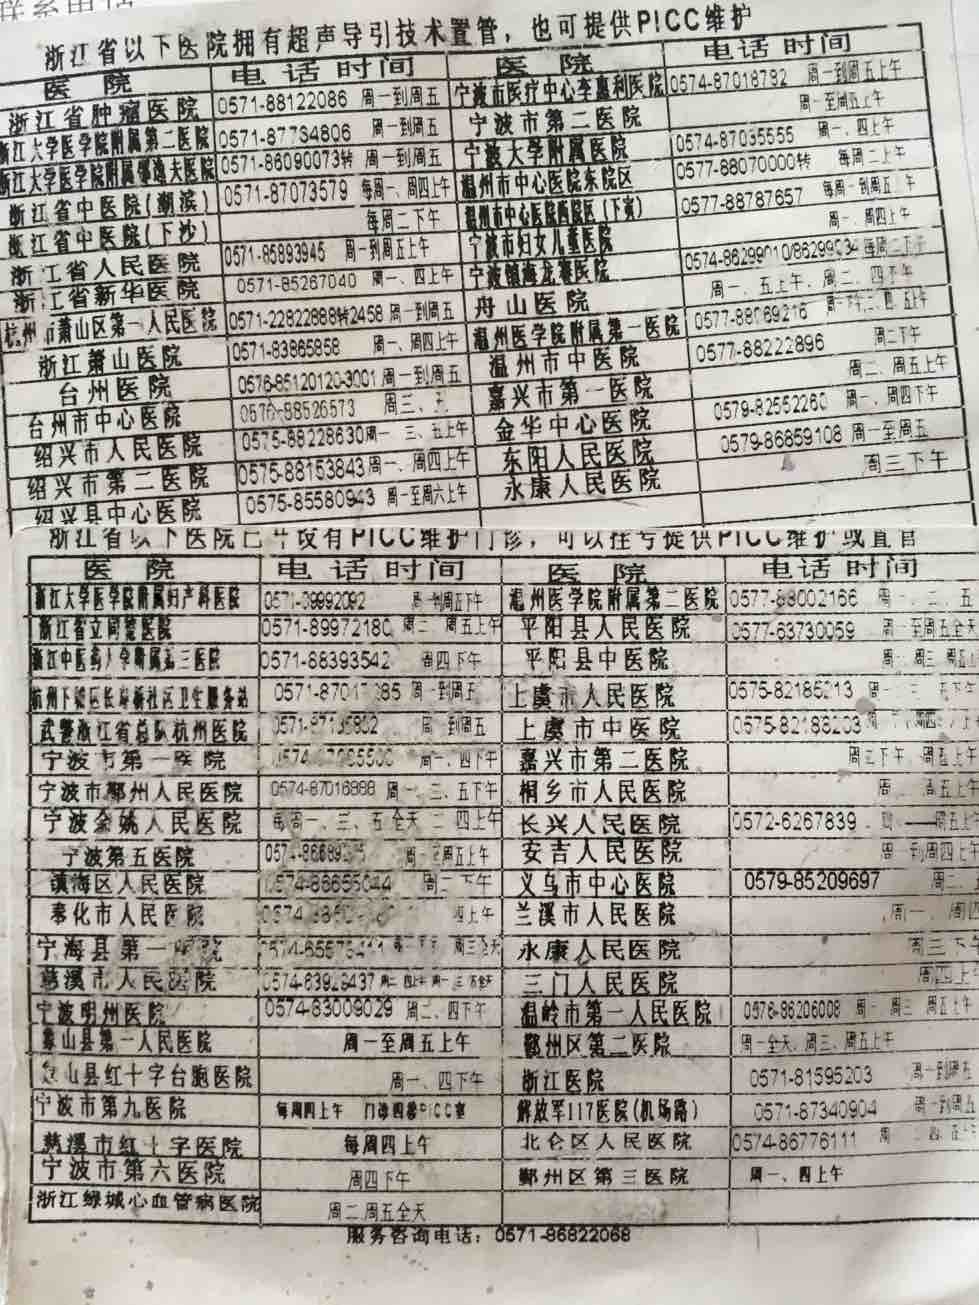 浙江省以下医院拥有超声导引技术置管，也可提供PICC维护
医 院 电 话 时 间 医 院 电 话 时 间
浙江省肿瘤医院 0571-88122086 周一到周五 宁波市医疗中心李惠利医院 0574-87018792 周一到周五上午
浙江大学医学院附属第二医院 0571-87784806 周一到周五 宁波市第二医院 周一至周五上午
浙江大学医学院附属邵逸夫医院 0571-86090073转 周一到周五 宁波大学附属医院 0574-87035555 周一、四上午
浙江省中医院(湖滨) 0571-87073579 每周一、周四上午 温州市中心医院东院区 0577-88070000转 每周二上午
浙江省中医院(下沙) 每周二下午 温州市中心医院西院区(下寅) 0577-88787657 每周一到周五
浙江省人民医院 0571-85893945 周一到周五上午 宁波市妇女儿童医院 周一、周四上午
浙江省新华医院 0571-85267040 周一、四上午 宁波镇海龙赛医院 0574-86299010/86299034 每周二下午
杭州市萧山区第一人民医院 0571-22822888转2458 周一到周五 舟山医院 周一、五上午、周二、四下午
浙江萧山医院 0571-83865858 周一、周四上午 温州医学院附属第一医院 0577-88069216
台州医院 0576-85120120-3001 周一到周五 温州市中医院 0577-88222896 周二下午
台州市中心医院 0576-88526573 周三、五 嘉兴市第一医院 周二、周五上午
绍兴市人民医院 0575-88228630 周一、三、五上午 金华中心医院 0579-82552260 周一、周四下午
绍兴市第二医院 0575-88153843 周一、周四上午 东阳人民医院 0579-86859108 周一至周五
绍兴县中心医院 0575-85580943 周一至周六上午 永康人民医院 周三下午
浙江省以下医院已开设有PICC维护门诊，可以挂号提供PICC维护或置管
医 院 电 话 时 间 医 院 电 话 时 间
浙江大学医学院附属妇产科医院 0571-89992092 周一到周五下午 温州医学院附属第二医院 0577-88002166 周一、二、五
浙江省立同德医院 0571-89972180 周二、周五上午 平阳县人民医院 0577-63730059 周一至周五全天
浙江中医药大学附属第三医院 0571-88393542 周四下午 平阳县中医院 周一、周三、周五
杭州下城区长庆潮鸣社区卫生服务站 0571-870 285 周一到周五 上虞市人民医院 0575-82185213 周一、三、五下午
武警浙江省总队杭州医院 周一到周五 上虞市中医院 0575-82188203
宁波市第一医院 周一、四下午 嘉兴市第二医院 周三下午、周五上午
宁波市鄞州人民医院 0574-87016888 周一、三、五下午 桐乡市人民医院 周二、周五上午
宁波余姚人民医院 每周一、三、五全天 二、四上午 长兴人民医院 0572-6267839 周一—周五上午
宁波第五医院 周一至周五上午 安吉人民医院 周一到周四上午
镇海区人民医院 0574-86655044 周二下午 义乌市中心医院 0579-85209697 周二
奉化市人民医院 四上午 兰溪市人民医院 周一、周四
宁海县第一医院 周三全天 永康人民医院 周三下午
慈溪市人民医院 0574-63929437 周二、四上午 周一、三、五全天 三门人民医院 周四上午
宁波明州医院 0574-83009029 周二、四下午 温岭市第一人民医院 0576-86206008 周一、周三、周五下午
象山县第一人民医院 周一至周五上午 鄞州区第二医院 周一全天、周三、周五上午
象山县红十字台胞医院 周一、四下午 浙江医院 0571-81595203 周一到周五
宁波市第九医院 每周四上午 门诊四楼PICC室 解放军117医院(机场路) 0571-87340904 周一到周五
慈溪市红十字医院 每周四上午 北仑区人民医院 0574-86776111 周一、二、四、五上午
宁波市第六医院 周四下午 鄞州区第三医院 周一、四上午
浙江绿城心血管病医院 周二周五全天
服务咨询电话：0571-86822068